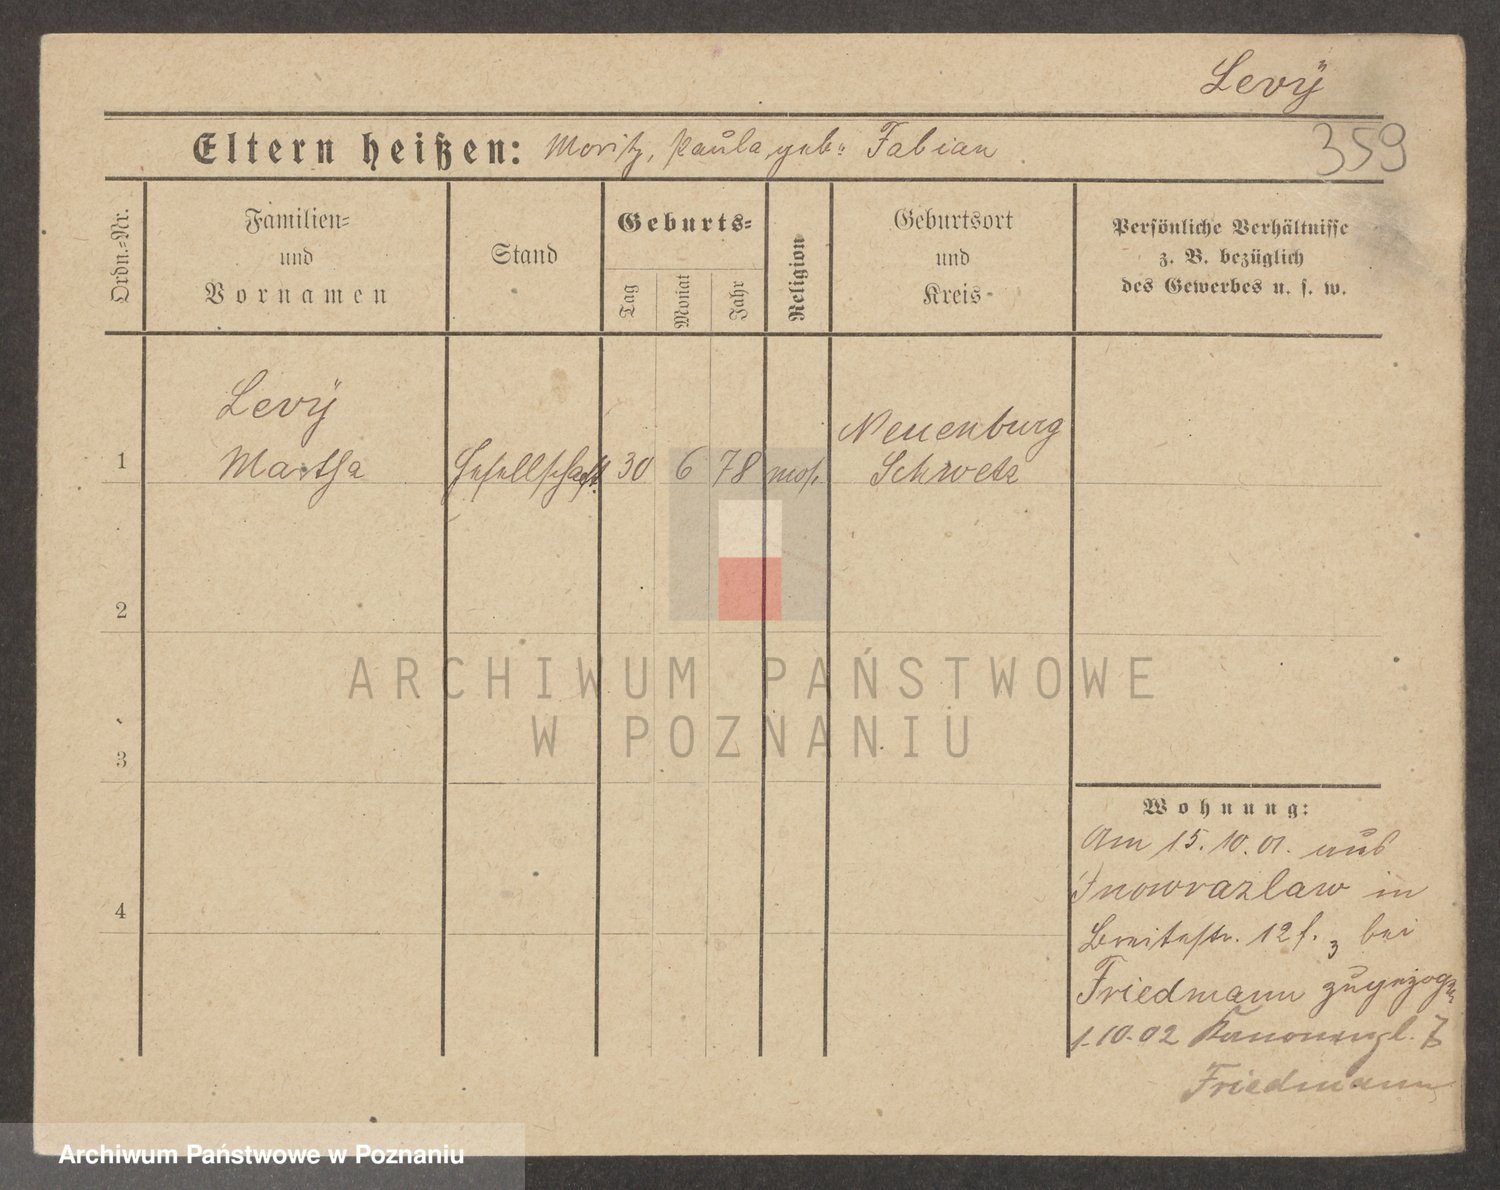 Levÿ
359
Eltern heißen: Moritz, Paula, geb. Fabian
Ordn.-Nr.
Familien-
und
Vornamen
Stand
Geburts-
Tag
Monat
Jahr
Religion
Geburtsort
und
Kreis
Persönliche Verhältnisse
z. B. bezüglich
des Gewerbes u. s. w.
Levÿ
1 Martha Gesellschaft. 30 6 78 mos.
Neuenburg
Schwetz
2
3
4
Wohnung:
Am 15.10.01. aus
Inowrazlaw in
Breitestr. 12 f. 3 bei
Friedmann zugezogen
1.10.02 Kanonenpl.
Friedmann
ARCHIWUM PAŃSTWOWE
W POZNANIU
Archiwum Państwowe w Poznaniu